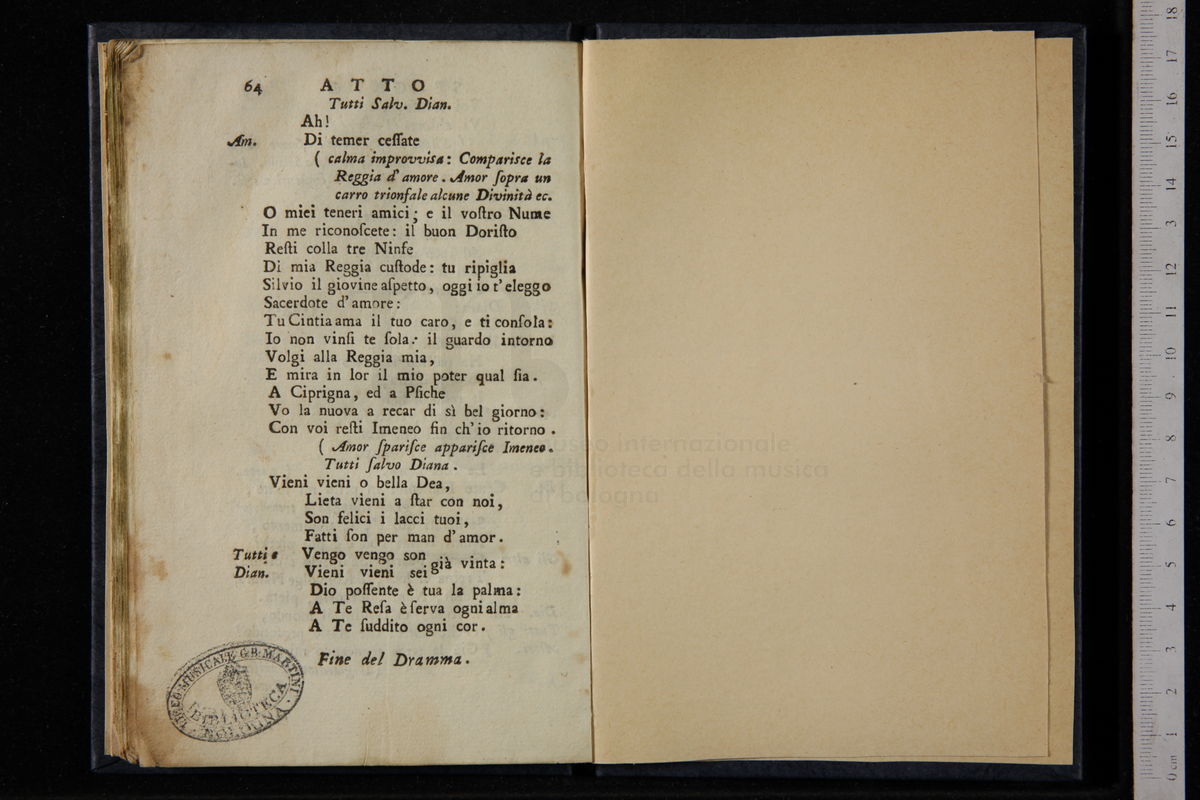 64 ATTO
Tutti Salv. Dian.
Ah!
Am. Di temer ceſſate
( calma improvviſa: Comparisce la
Reggia d' amore. Amor ſopra un
carro trionfale alcune Divinità ec.
O miei teneri amici; e il voſtro Nume
In me riconoſcete: il buon Doriſto
Reſti colla tre Ninfe
Di mia Reggia cuſtode: tu ripiglia
Silvio il giovine aſpetto, oggi io t'eleggo
Sacerdote d'amore:
Tu Cintia ama il tuo caro, e ti conſola:
Io non vinſi te ſola: il guardo intorno
Volgi alla Reggia mia,
E mira in lor il mio poter qual ſia.
A Ciprigna, ed a Pſiche
Vo la nuova a recar di sì bel giorno:
Con voi reſti Imeneo fin ch'io ritorno.
( Amor ſpariſce appariſce Imeneo.
Tutti ſalvo Diana.
Vieni vieni o bella Dea,
Lieta vieni a ſtar con noi,
Son felici i lacci tuoi,
Fatti ſon per man d'amor.
Tutti e Vengo vengo son già vinta:
Dian. Vieni vieni sei
Dio poſſente è tua la palma:
A Te Reſa è ſerva ogni alma
A Te ſuddito ogni cor.
Fine del Dramma.
LICEO MUSICALE G.B. MARTINI
BIBLIOTECA
BOLOGNA
museo internazionale
e biblioteca della musica
di bologna
0 cm 1 2 3 4 5 6 7 8 9 10 11 12 13 14 15 16 17 18